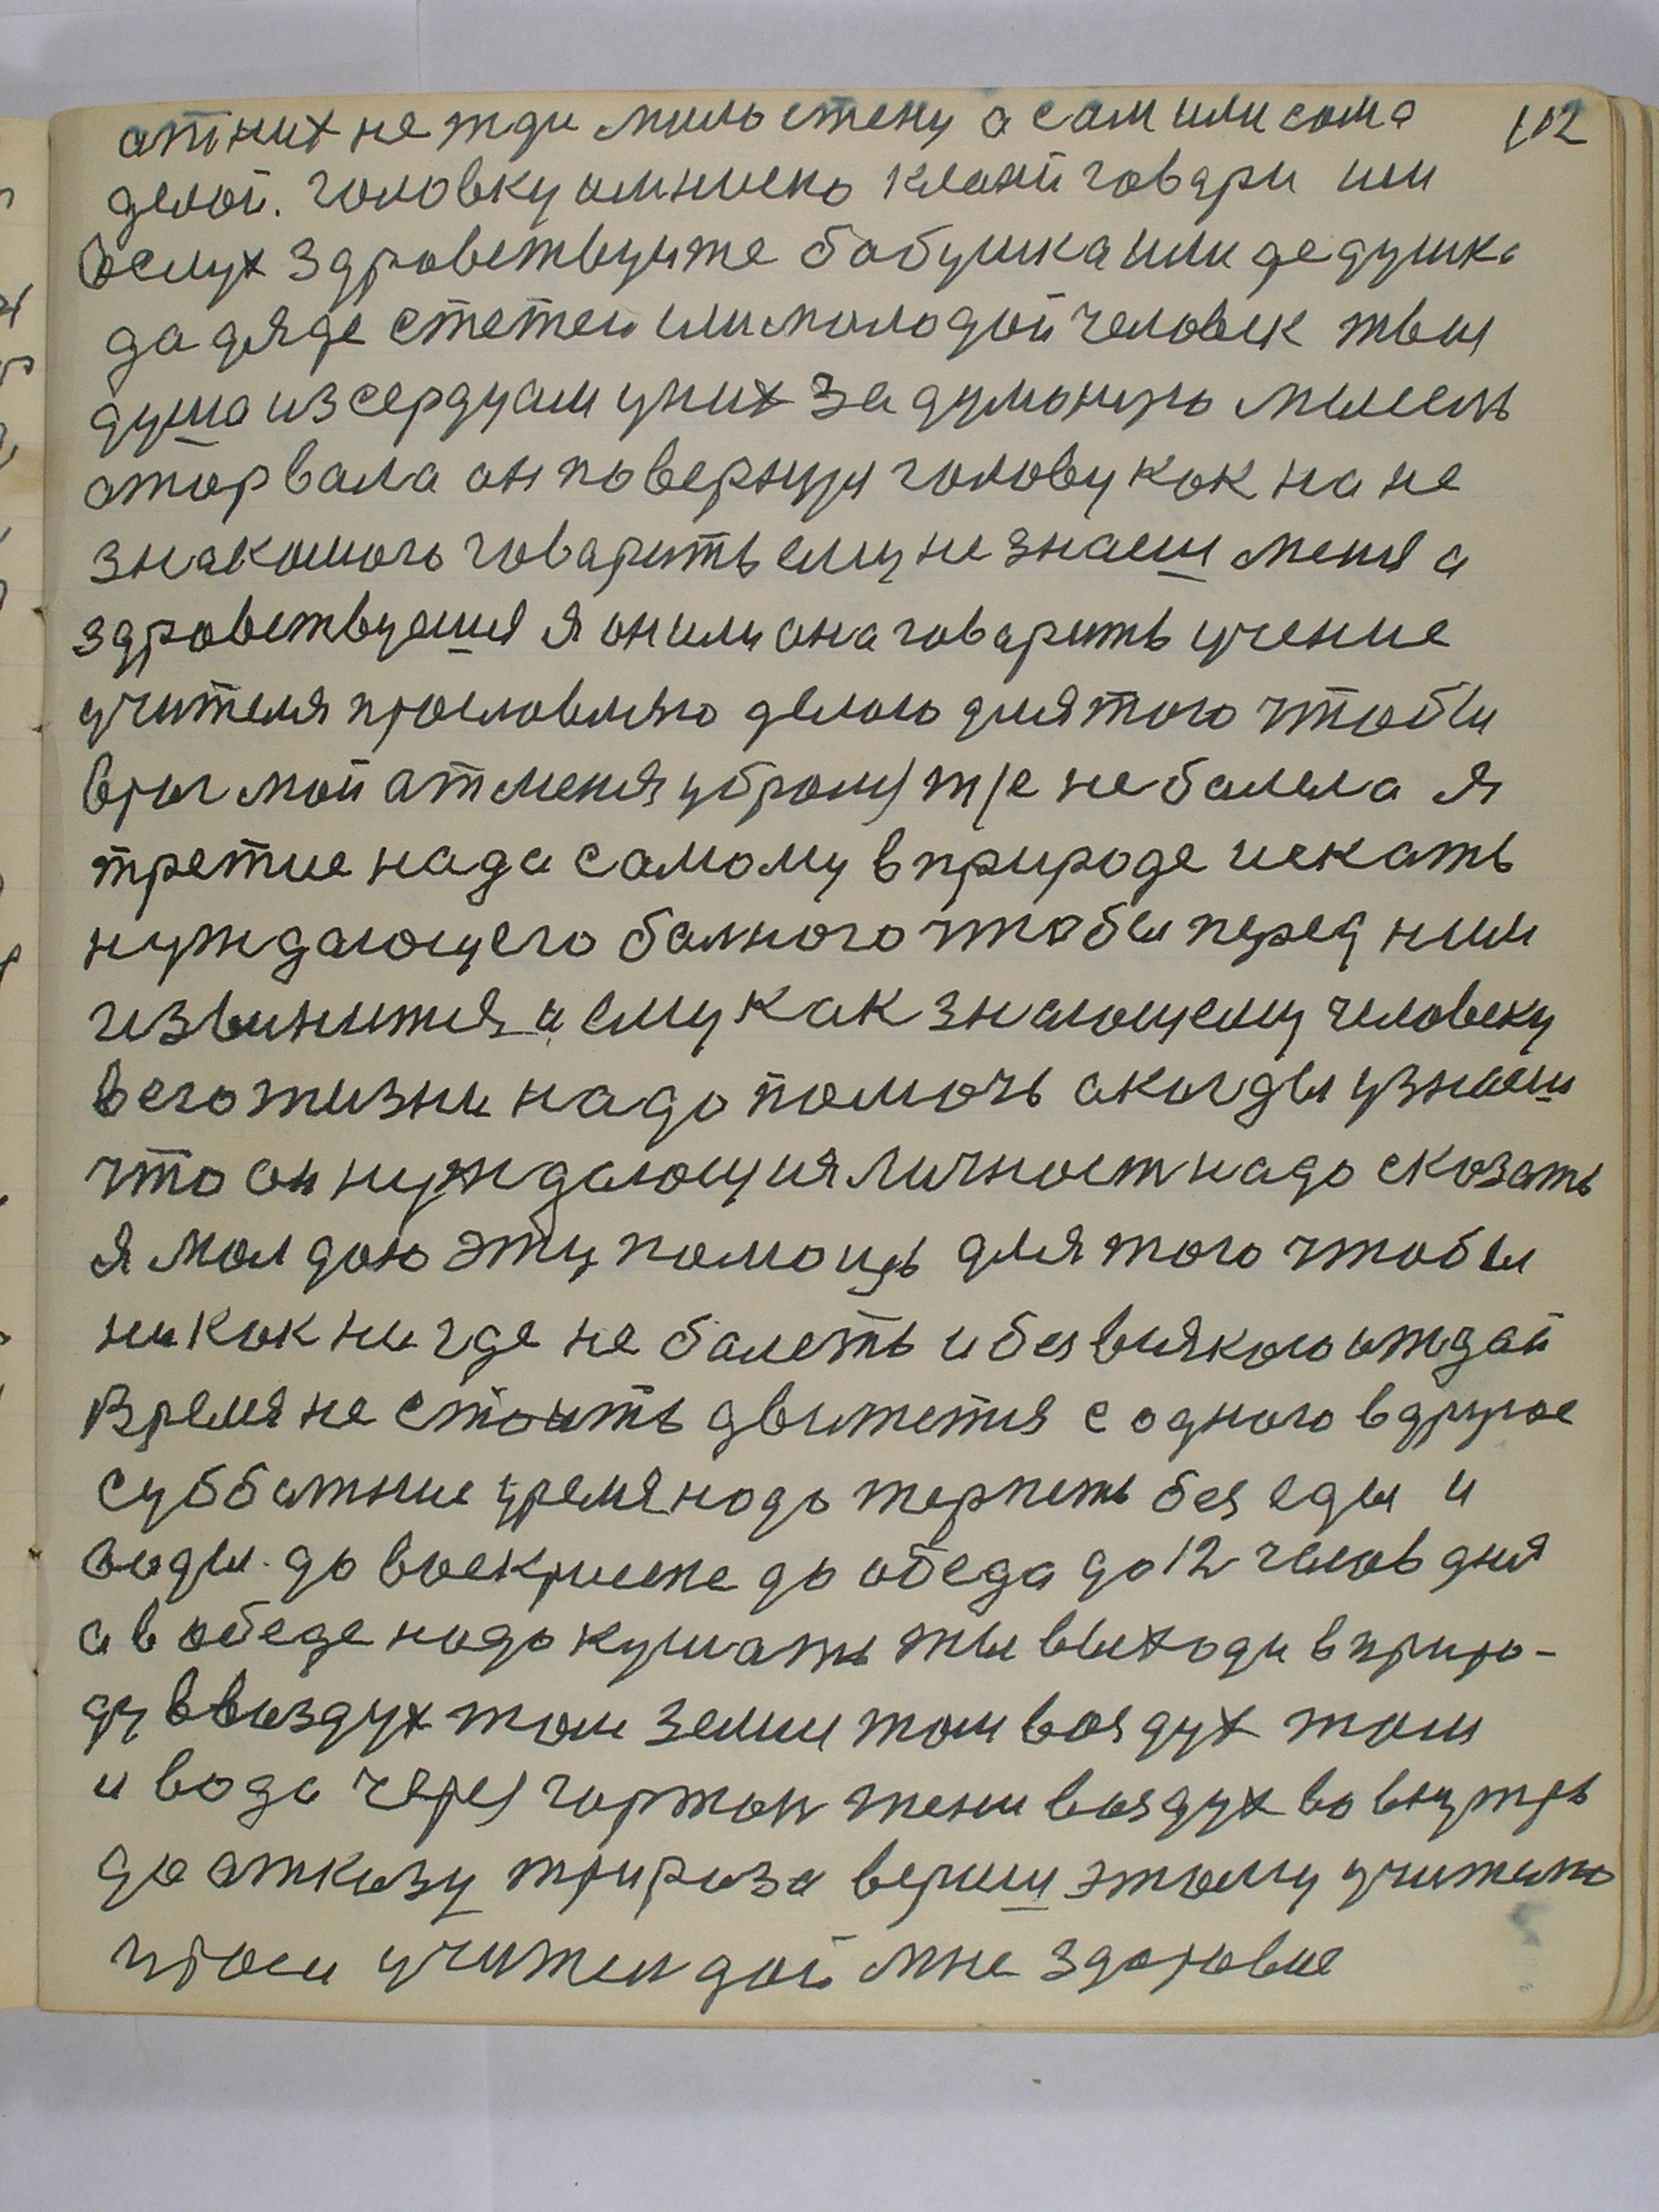 102
атних не жди мильстену а сам или сама
делой. головку им низко клани говари им
вслух здроветвуите бабушка или дедушка
да дяде стетей или молодой человек твоя
душа из сердцам у них задуманую мысель
оторвала он повернул голову как на не
знакомого говарить ему не знаеш меня а
здроветвуешся я он или она говарить учение
учителя прословляю делаю для того чтобы
враг мой атменя убрался т/е не балела я
третие нада самому в природе искать
нуждающего балного чтобы перед ним
извинится а ему как знающему человеку
в его жизни надо помочь а когды узнаеш
что он нуждающия личност надо сказать
я мол даю эту помощь для того чтобы
ни как ни где не балеть и без всякого отдай
Время не стоить движется с одного в другое
субботние время надо терпеть без еды и
воды. до воскресене до обеда до 12 часов дня
а в обеде надо кушать ты выходи в приро-
ду в воздух там земля там воздух там
и вода через гортон тени воздух во внутрь
до отказу три раза вериш этому учителю
проси учител дай мне здоровие